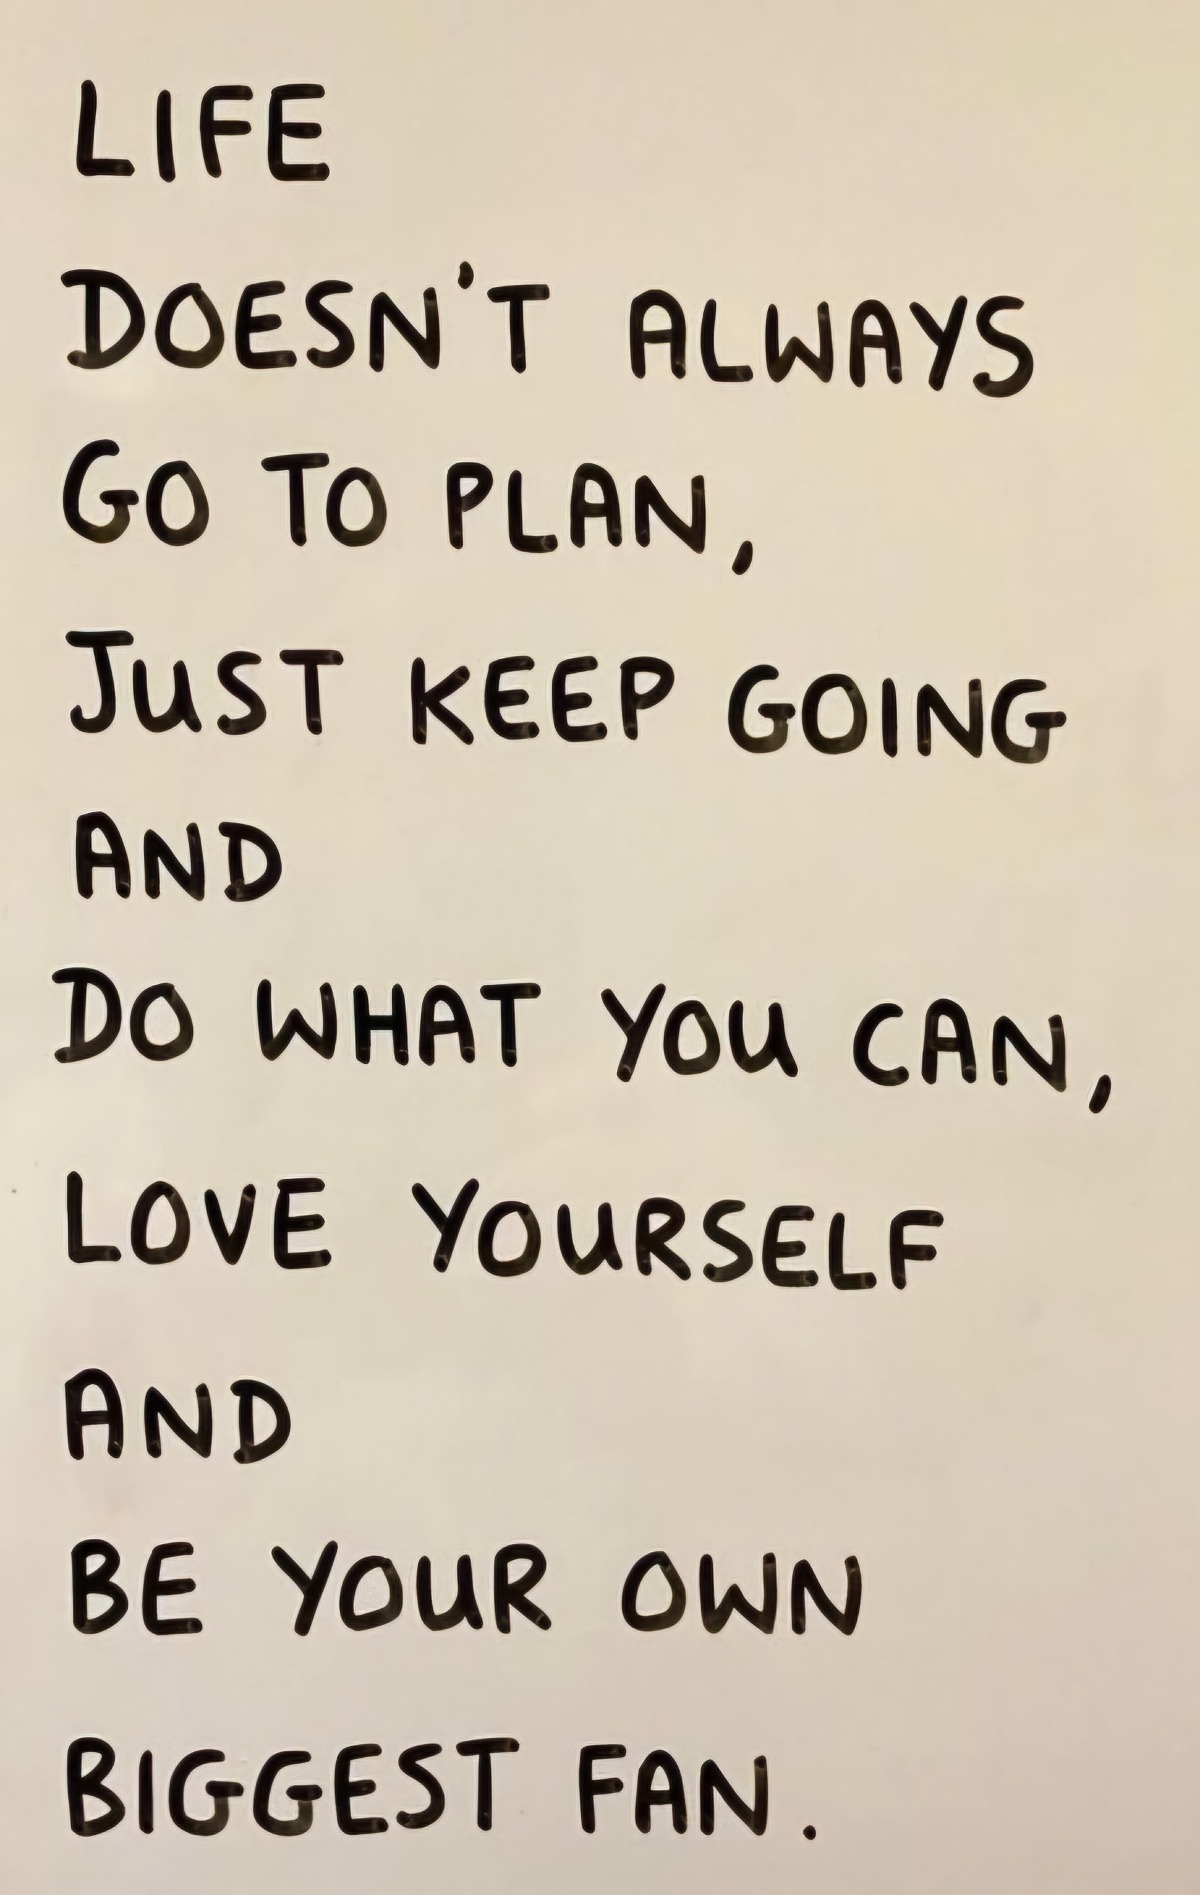 LIFE
DOESN'T ALWAYS
GO TO PLAN,
JUST KEEP GOING
AND
DO WHAT YOU CAN,
LOVE YOURSELF
AND
BE YOUR OWN
BIGGEST FAN.